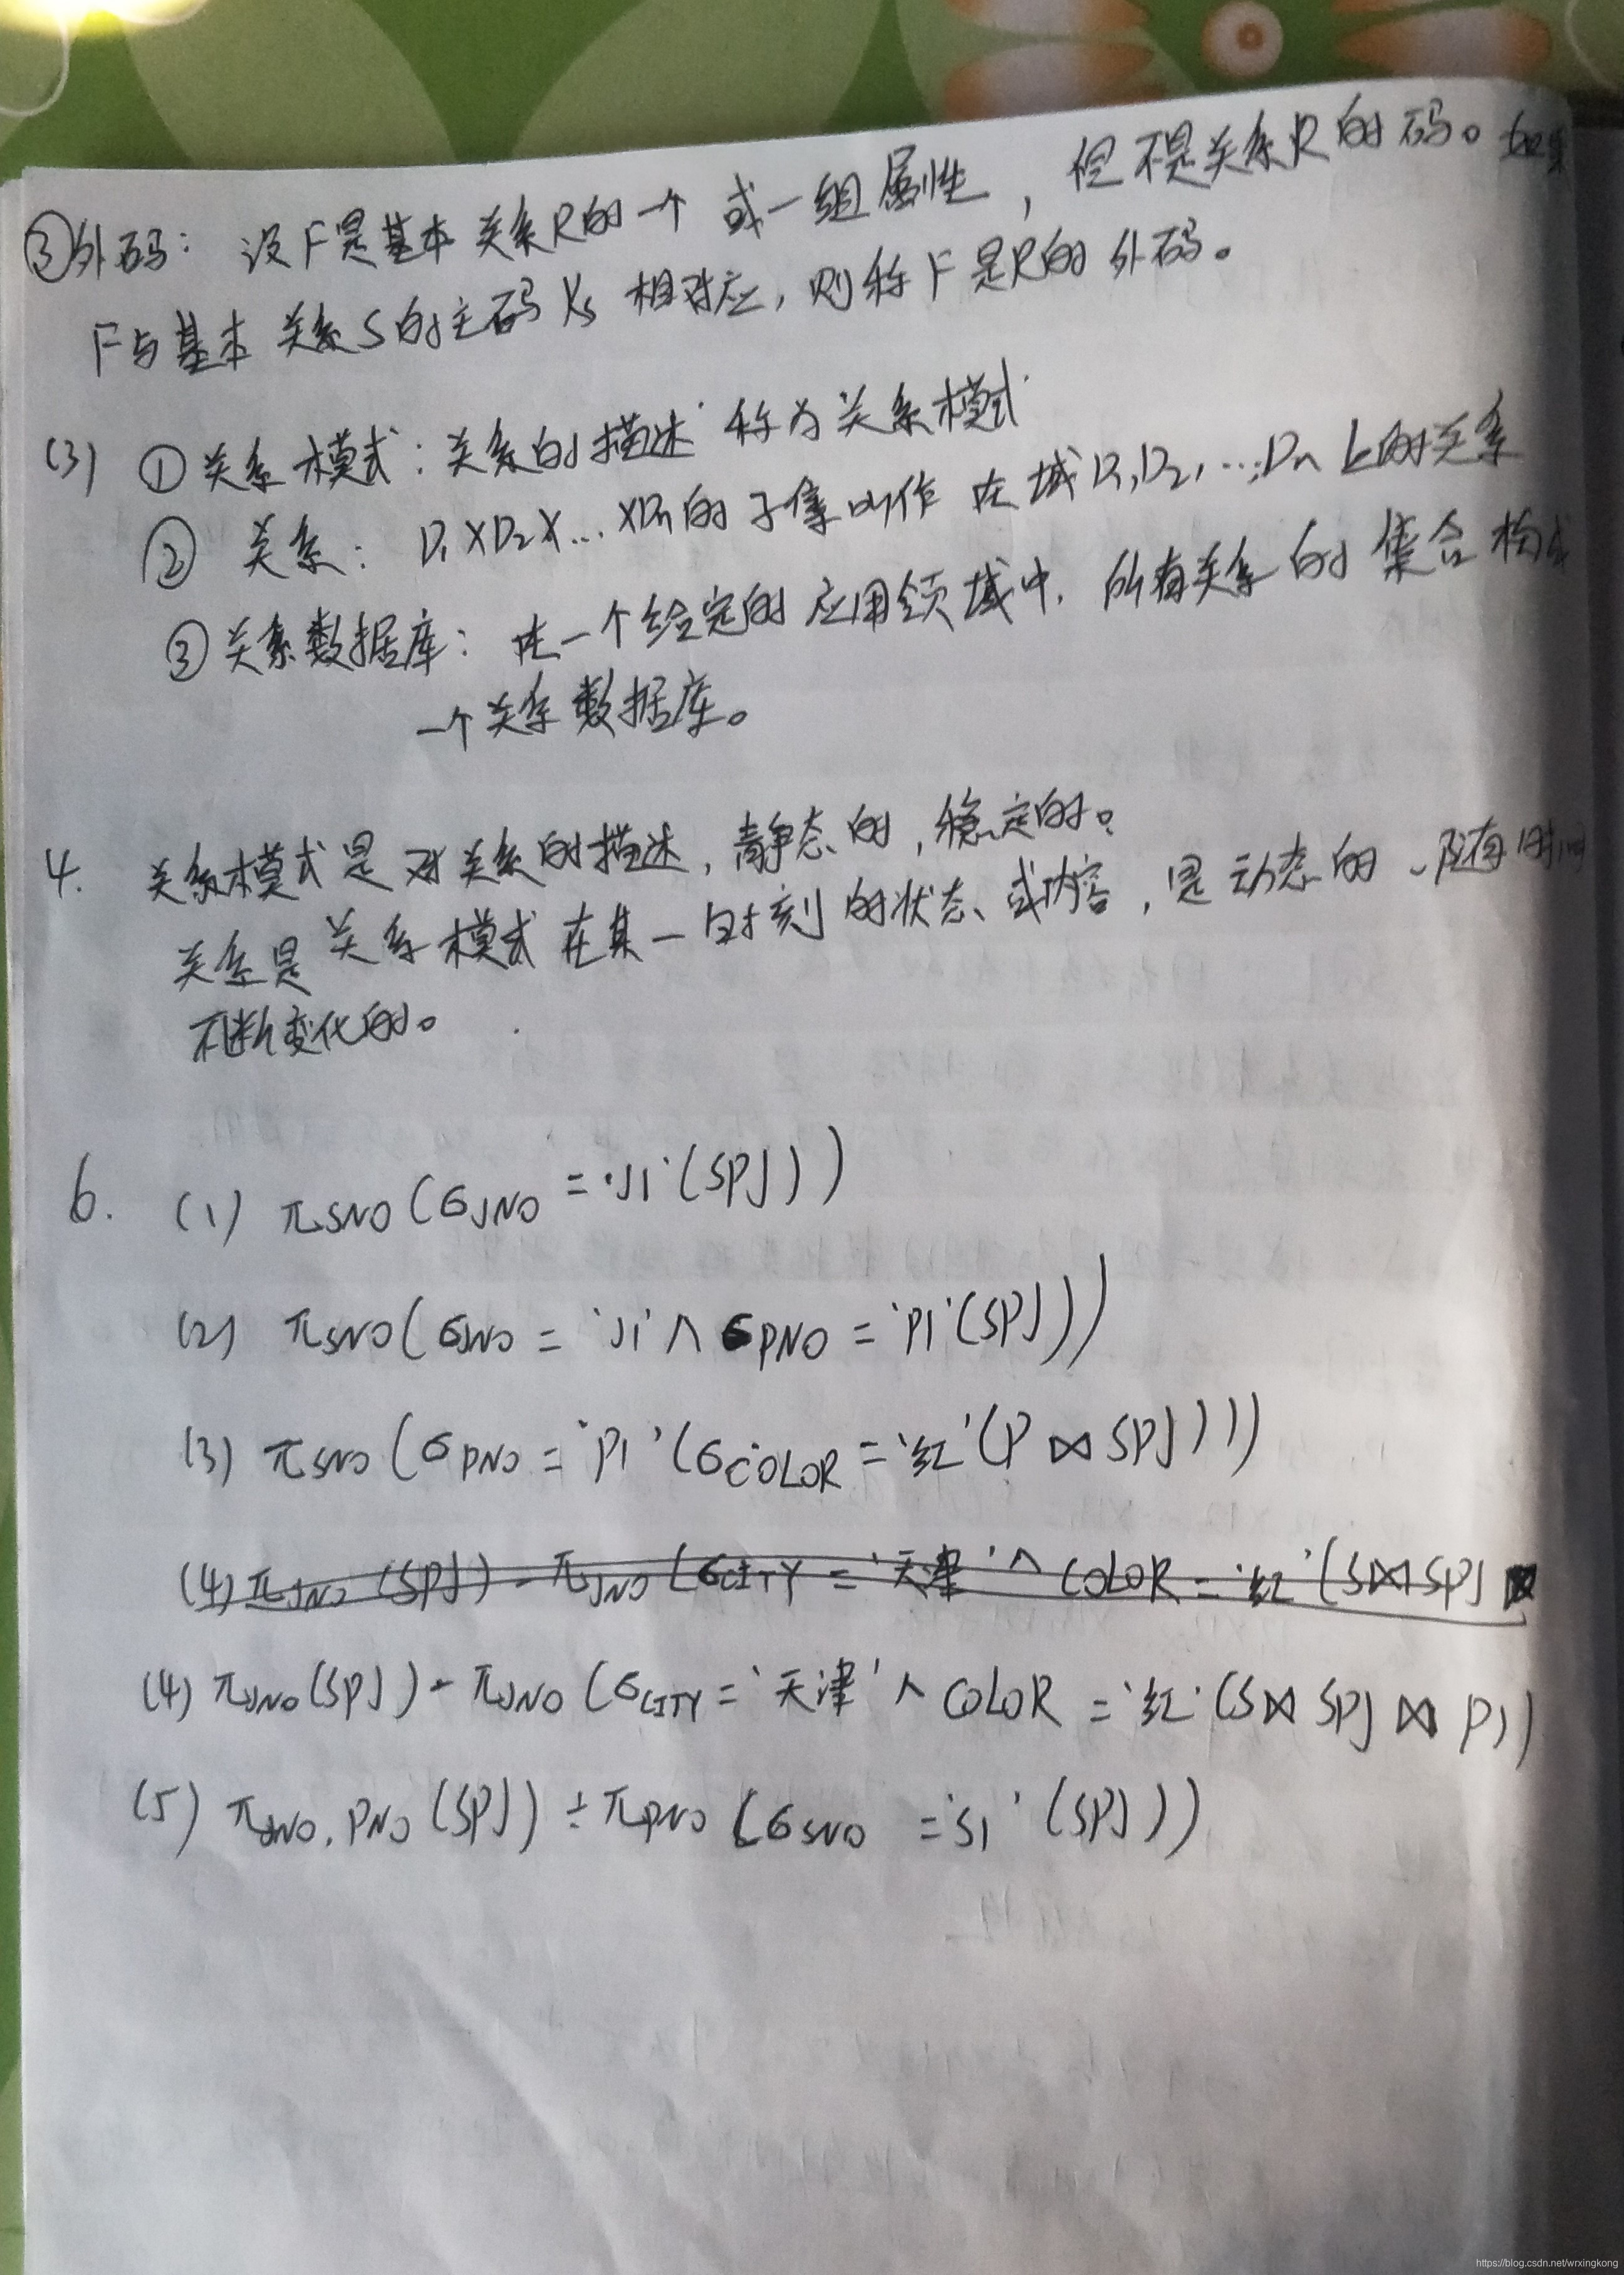 ③外码：设F是基本关系R的一个或一组属性，但不是关系R的码。如果
F与基本关系S的主码Ks相对应，则称F是R的外码。
(3) ①关系模式：关系的描述称为关系模式
② 关系：D₁×D₂×...×Dn的子集叫作在域D₁,D₂,...,Dn上的关系
③关系数据库：在一个给定的应用领域中，所有关系的集合构成
一个关系数据库。
4. 关系模式是对关系的描述，静态的，稳定的。
关系是关系模式在某一时刻的状态或内容，是动态的、随有时间
不断变化的。
6. (1) πSNO(σJNO='J1'(SPJ))
(2) πSNO(σJNO='J1'∧σPNO='P1'(SPJ))
(3) πSNO(σPNO='P1'(σCOLOR='红'(P⋈SPJ)))
(4) πJNO(SPJ)-πJNO(σCITY='天津'∧COLOR='红'(S⋈SPJ
(4) πJNO(SPJ)-πJNO(σCITY='天津'∧COLOR='红'(S⋈SPJ⋈P))
(5) πJNO,PNO(SPJ)÷πPNO(σSNO='S1'(SPJ))
https://blog.csdn.net/wrxingkong